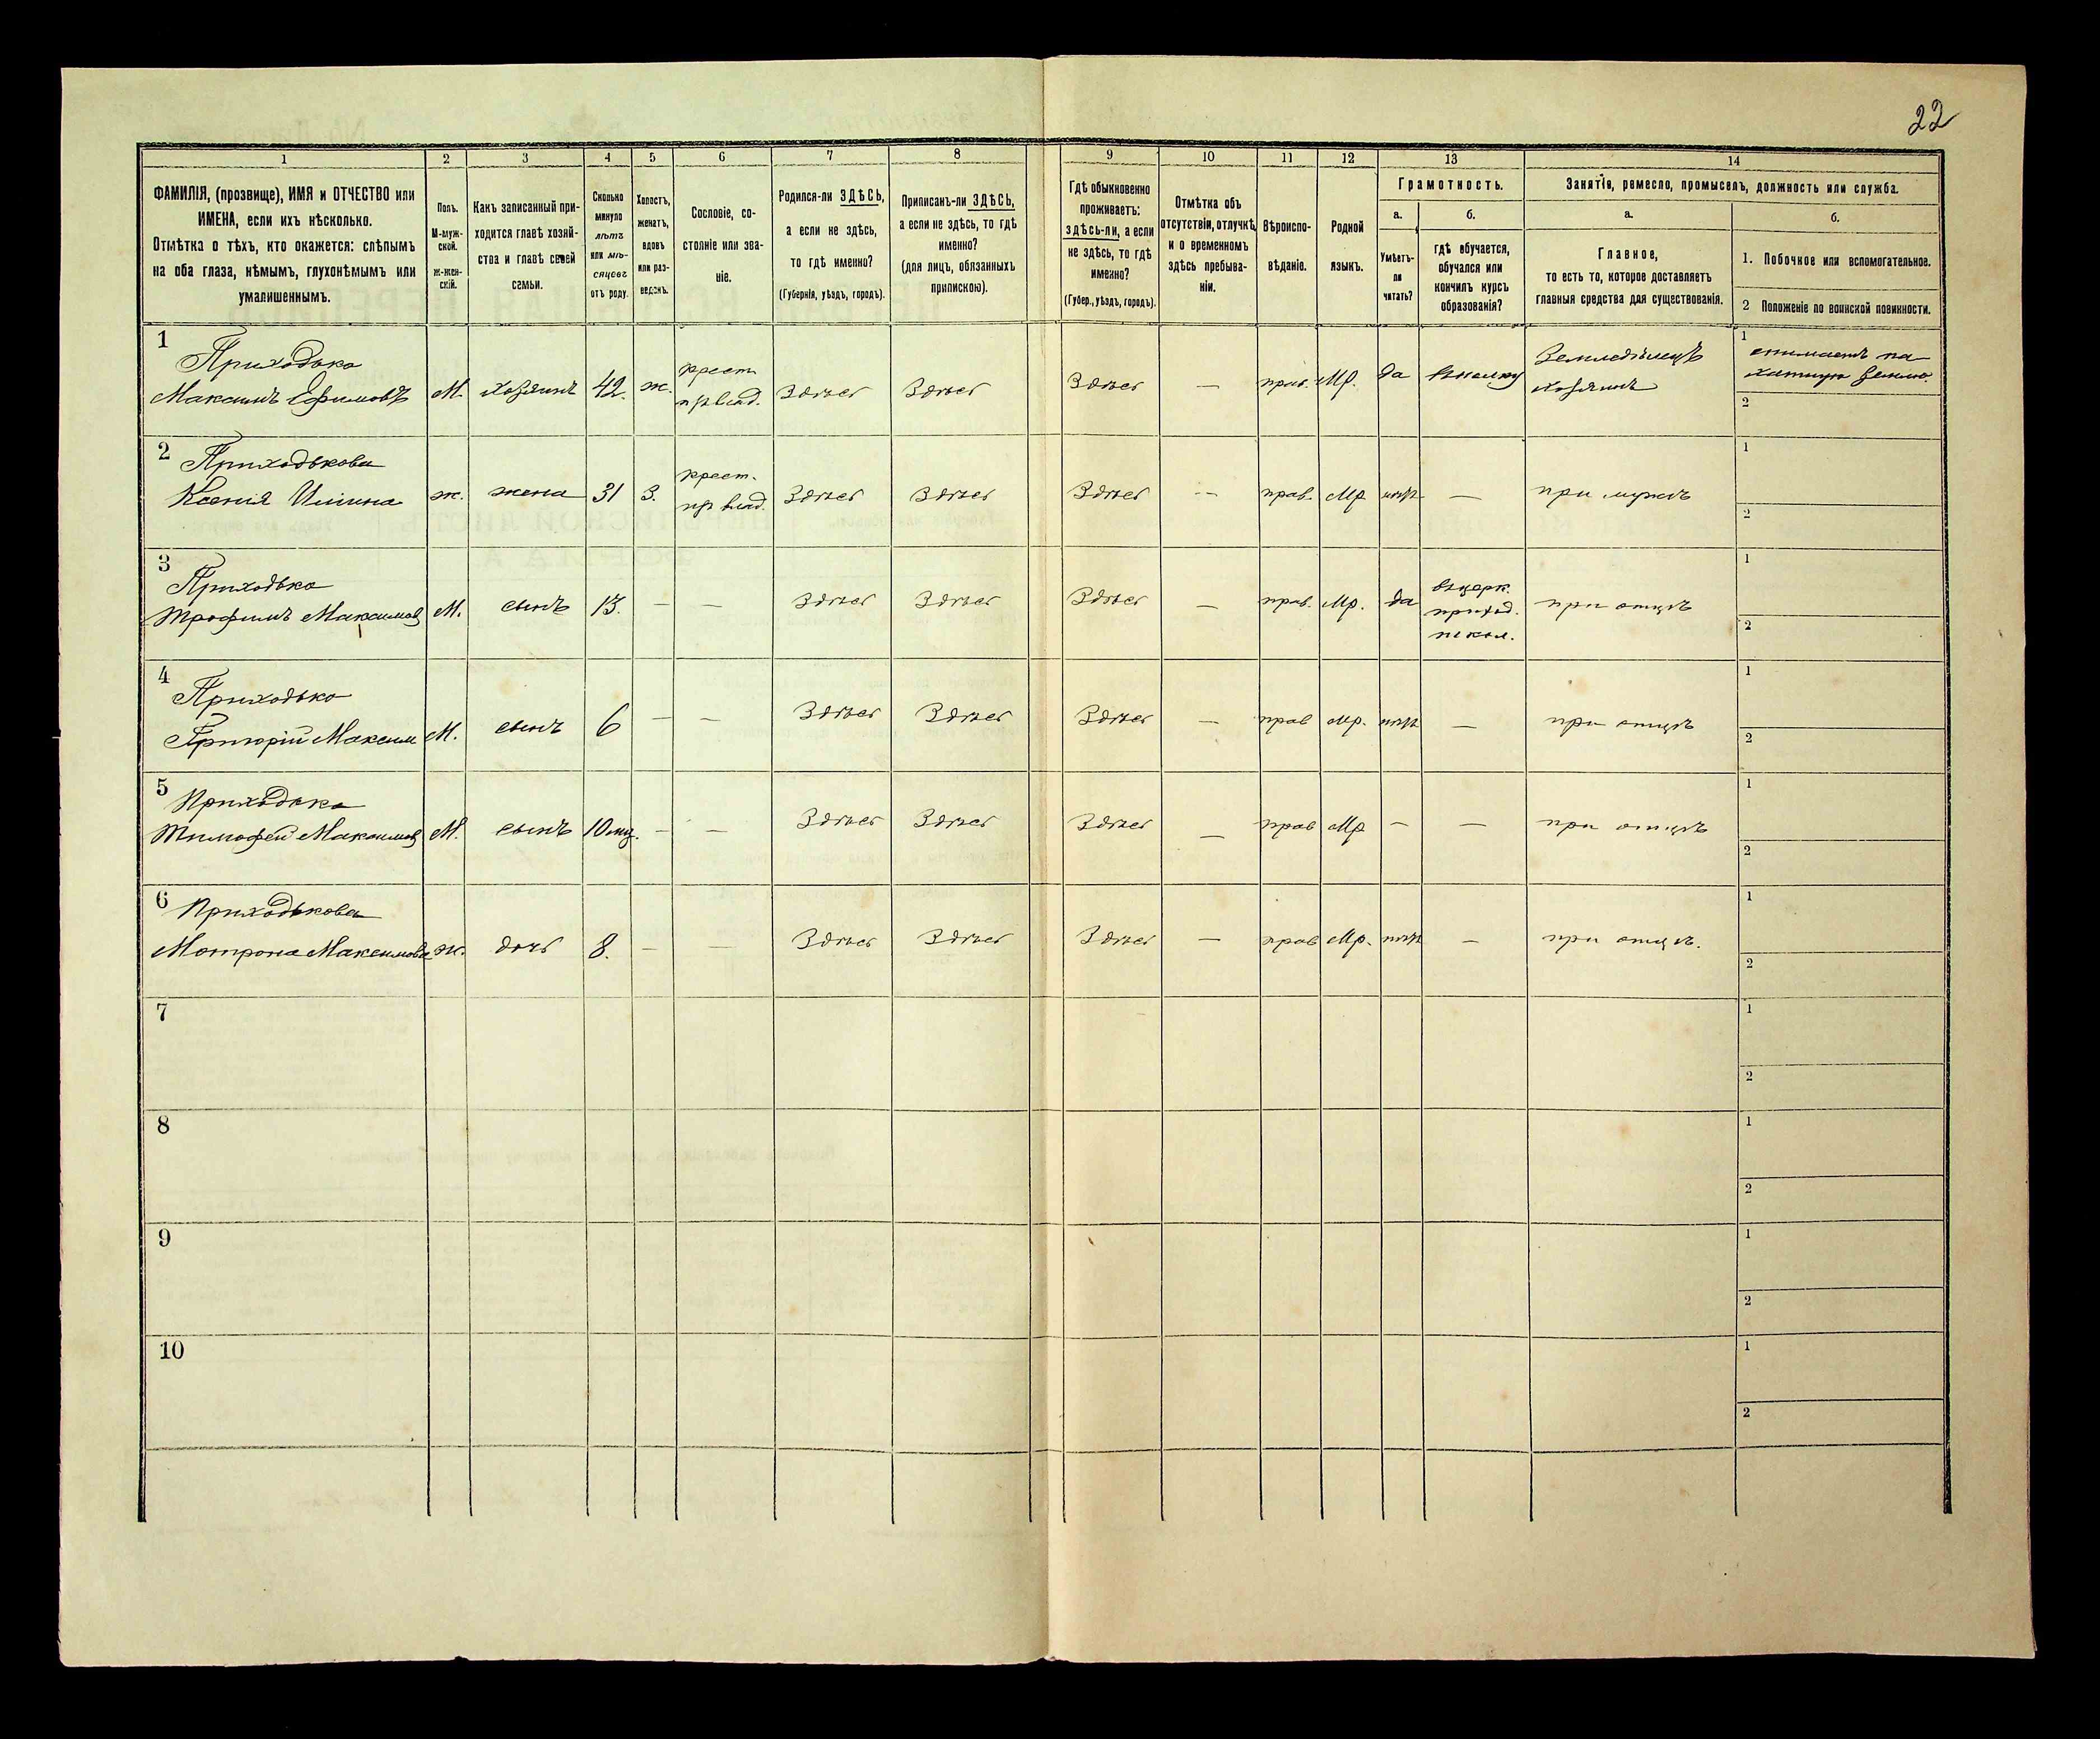 22
1 2 3 4 5 6 7 8 9 10 11 12 13 14
ФАМИЛІЯ, (прозвище), ИМЯ и ОТЧЕСТВО или
ИМЕНА, если ихъ нѣсколько.
Отмѣтка о тѣхъ, кто окажется: слѣпымъ
на оба глаза, нѣмымъ, глухонѣмымъ или
умалишеннымъ.
Полъ.
М-муж-
ской.
ж-жен-
скій.
Какъ записанный при-
ходится главѣ хозяй-
ства и главѣ своей
семьи.
Сколько
минуло
лѣтъ
или мѣ-
сяцевъ
отъ роду.
Холостъ,
женатъ,
вдовъ
или раз-
веденъ.
Сословіе, со-
стояніе или зва-
ніе.
Родился-ли ЗДѢСЬ,
а если не здѣсь,
то гдѣ именно?
(Губернія, уѣздъ, городъ).
Приписанъ-ли ЗДѢСЬ,
а если не здѣсь, то гдѣ
именно?
(для лицъ, обязанныхъ
припискою).
Гдѣ обыкновенно
проживаетъ:
здѣсь-ли, а если
не здѣсь, то гдѣ
именно?
(Губер., уѣздъ, городъ).
Отмѣтка объ
отсутствіи, отлучкѣ
и о временномъ
здѣсь пребыва-
ніи.
Вѣроиспо-
вѣданіе.
Родной
языкъ.
Грамотность.
а.
Умѣетъ-
ли
читать?
б.
гдѣ обучается,
обучался или
кончилъ курсъ
образованія?
Занятія, ремесло, промыселъ, должность или служба.
а.
Главное,
то есть то, которое доставляетъ
главныя средства для существованія.
б.
1. Побочное или вспомогательное.
2 Положеніе по воинской повинности.
1 Приходько
Максимъ Ефимовъ М. хозяинъ 42. ж. крест. пр влад. Здѣсь Здѣсь Здѣсь — прав. Мр. да Земледѣлецъ хозяинъ
1 снимаетъ па
хатную землю.
2
2 Приходькова
Ксенія ж. жена 31 З. крест. пр влад. Здѣсь Здѣсь Здѣсь — прав. Мр нѣтъ — при мужѣ
1
2
3 Приходько
Трофимъ Максимов М. сынъ 13. — — Здѣсь Здѣсь Здѣсь — прав. Мр. да въ церк. приход. школ. при отцѣ
1
2
4 Приходько
Григорій Максим М. сынъ 6 — — Здѣсь Здѣсь Здѣсь — прав Мр. нѣтъ — при отцѣ
1
2
5 Приходько
Тимофей Максимов М. сынъ 10 мц. — — Здѣсь Здѣсь Здѣсь — прав Мр — — при отцѣ
1
2
6 Приходькова
Мотрона Максимова ж. дочь 8. — — Здѣсь Здѣсь Здѣсь — прав Мр. нѣтъ — при отцѣ.
1
2
7
1
2
8
1
2
9
1
2
10
1
2